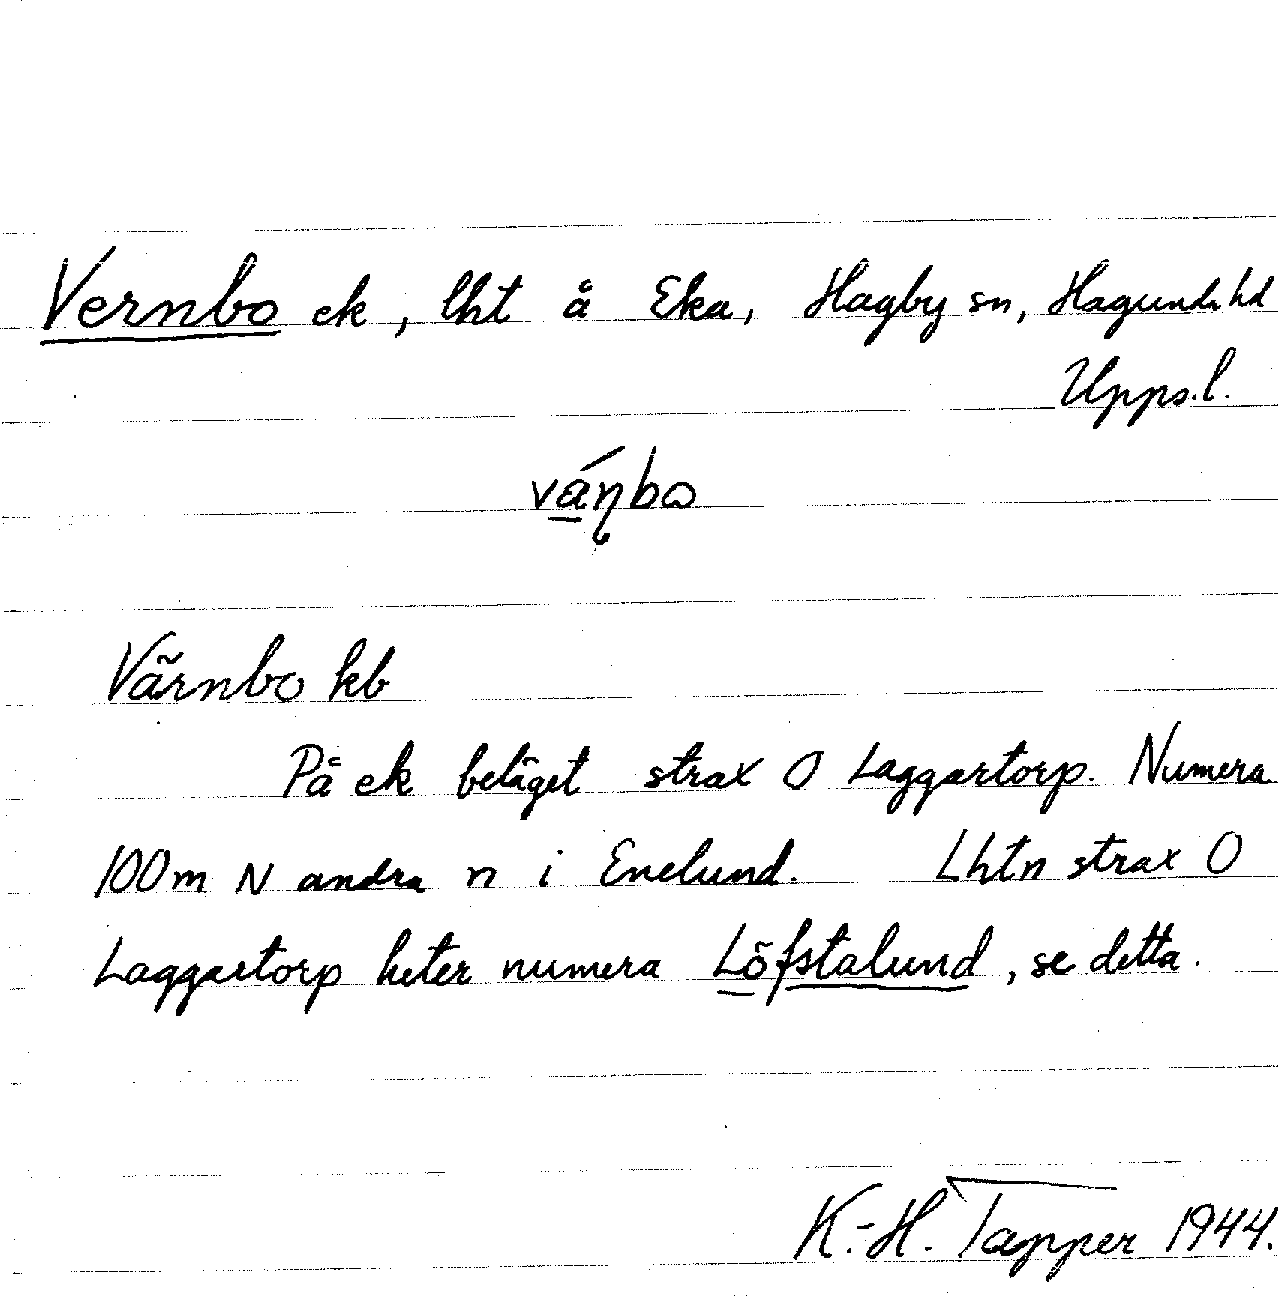 Vernbo ek, lht å Eka, Hagby sn, Hagunda hd
Upps.l.
vánbo
Värnbo kb
På ek beläget strax O Laggartorp. Numera
100m N andra n i Enelund. Lhtn strax O
Laggartorp heter numera Löfstalund, se detta.
K.-H. Tapper 1944.